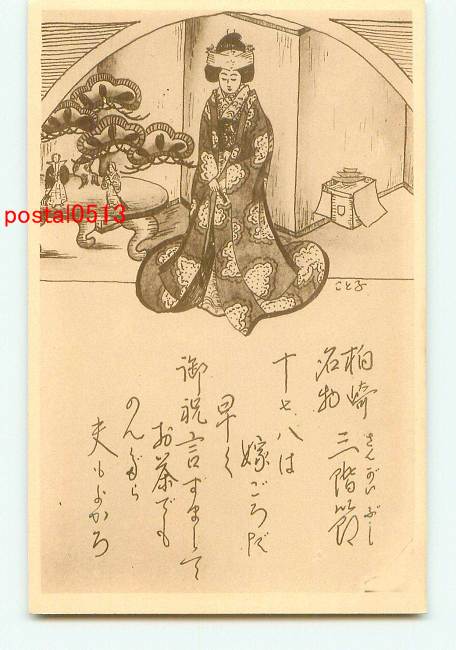 postal0513
こと子
柏崎
名物 三階節
さんがいぶし
十七八は
嫁ごろだ
早く
御祝言すまして
お茶でも
のんだら
夫もよかろ